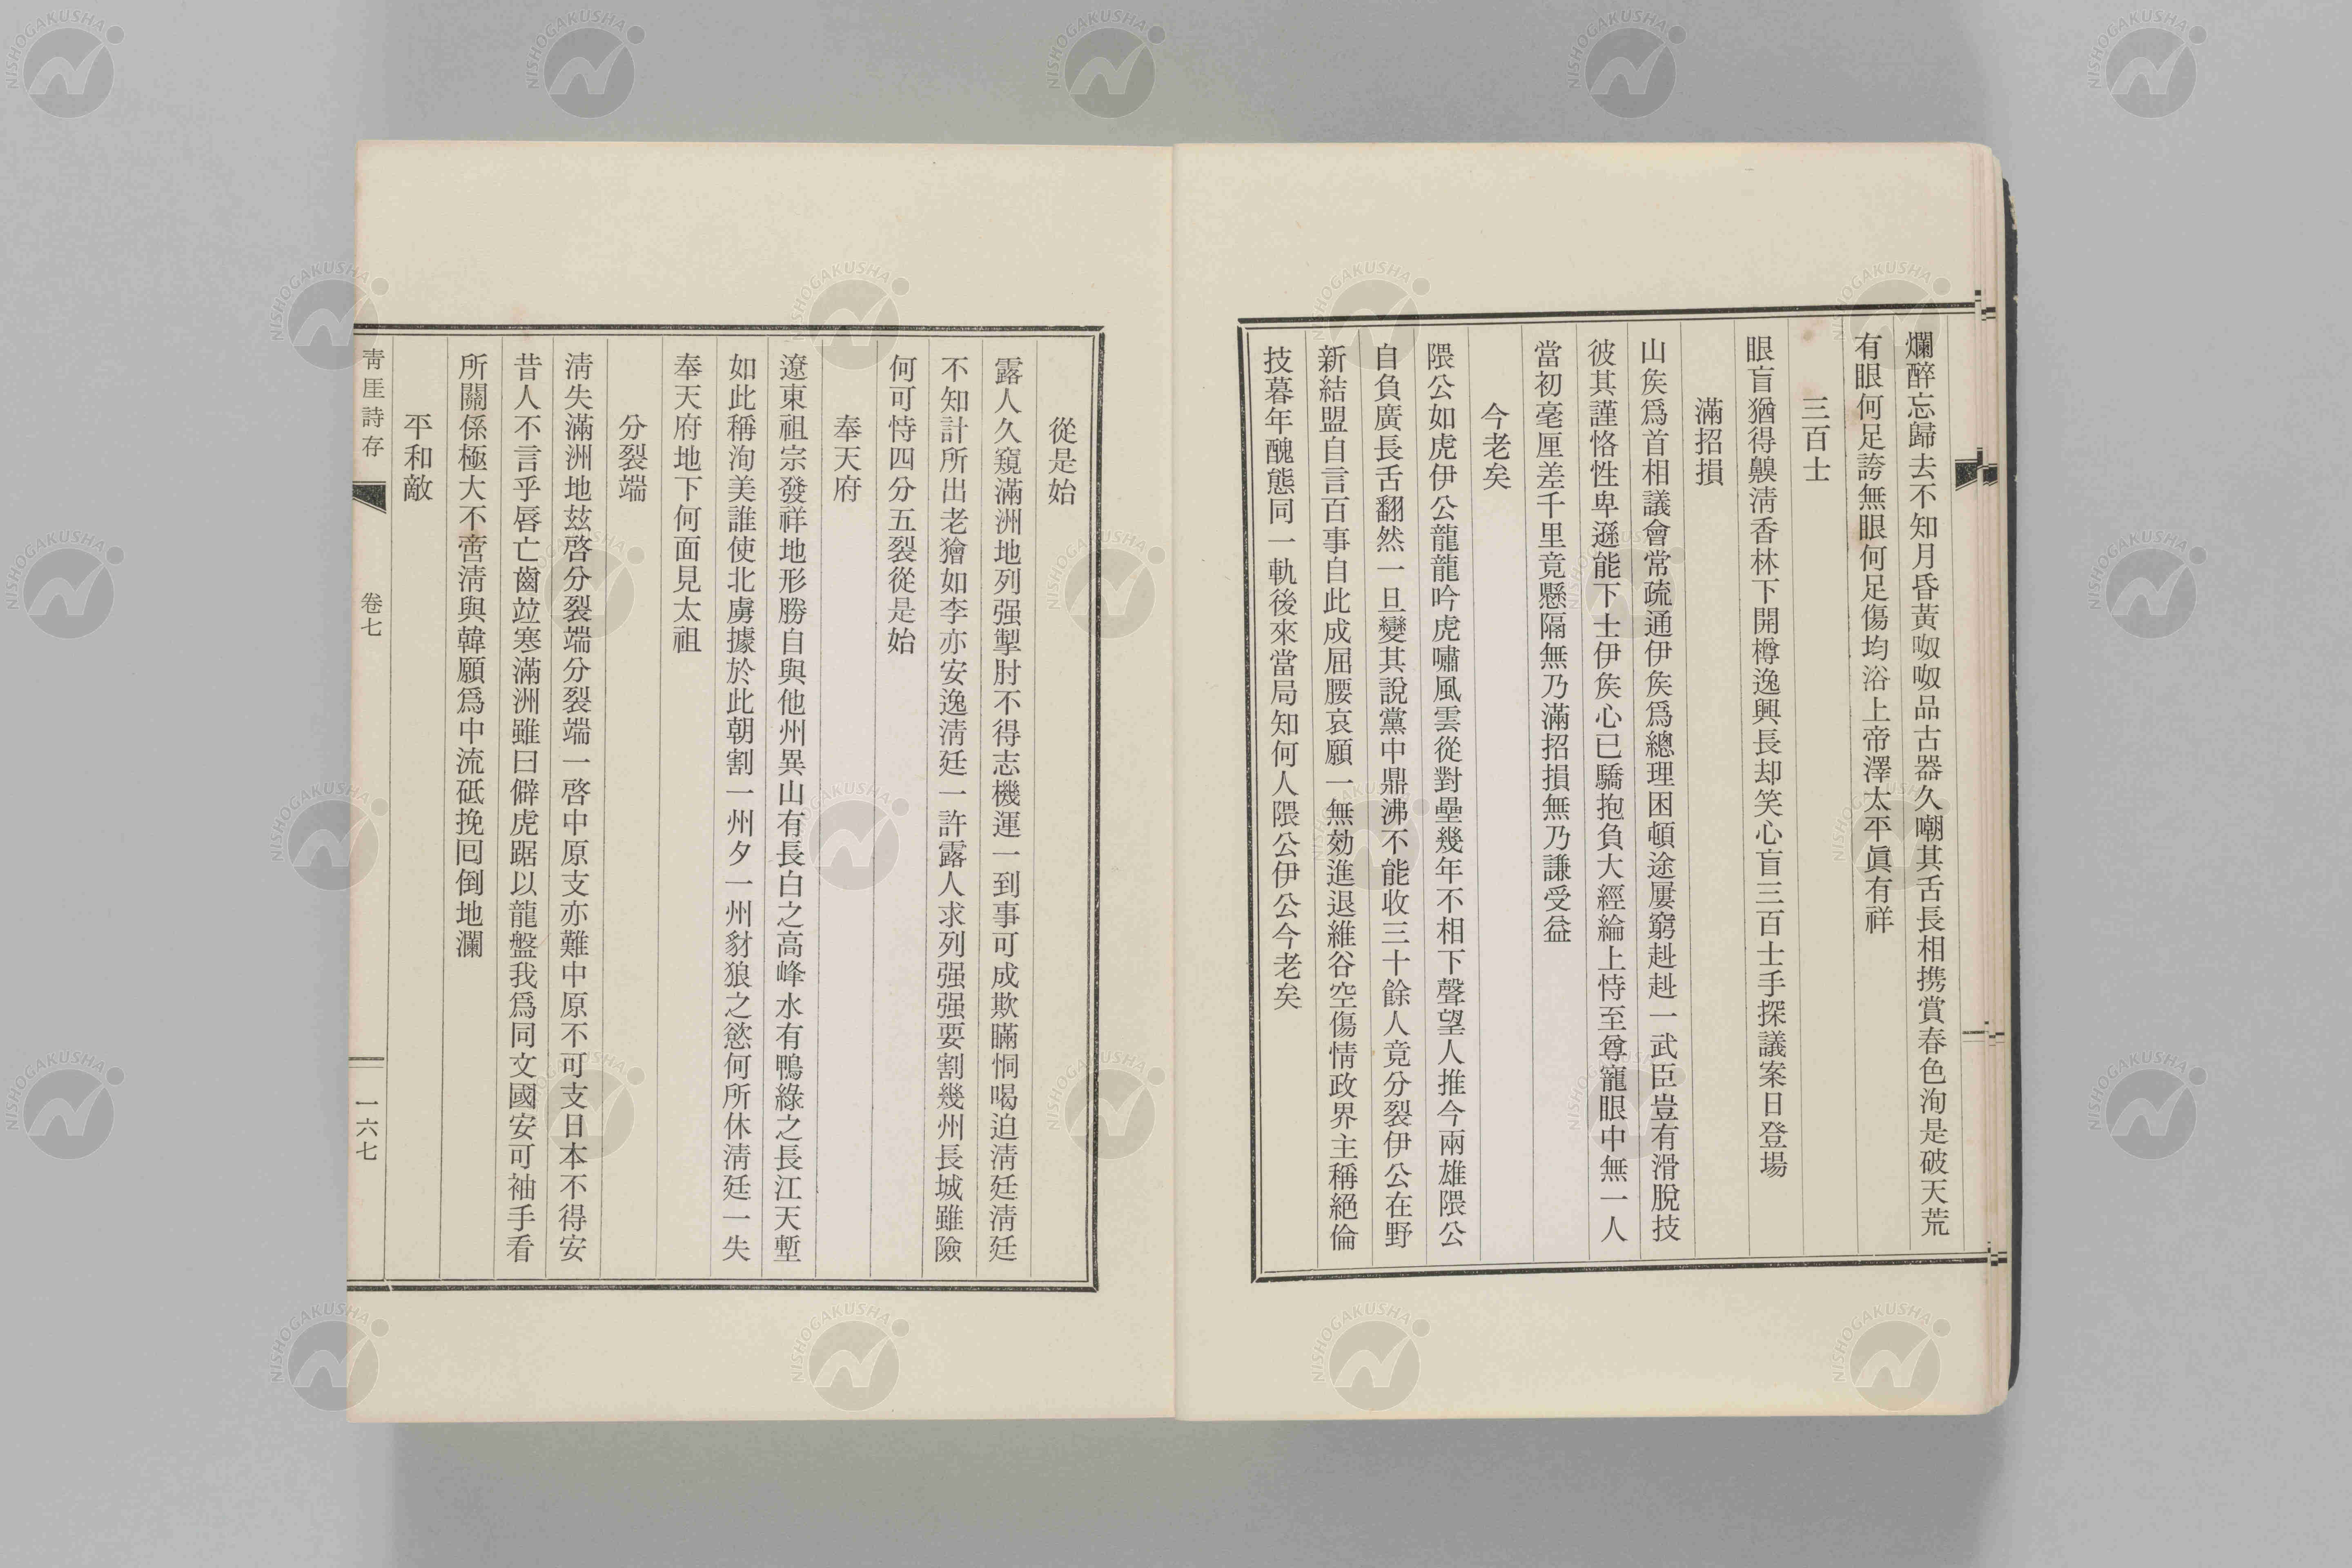 爛醉忘歸去不知月昏黃呶呶品古器久嘲其舌長相携賞春色洵是破天荒
有眼何足誇無眼何足傷均浴上帝澤太平眞有祥
三百士
眼盲猶得齅淸香林下開樽逸興長却笑心盲三百士手探議案日登場
滿招損
山矦爲首相議會常疏通伊矦爲總理困頓途屢窮赳赳一武臣豈有滑脫技
彼其謹恪性卑遜能下士伊矦心已驕抱負大經綸上恃至尊寵眼中無一人
當初毫厘差千里竟懸隔無乃滿招損無乃謙受益
今老矣
隈公如虎伊公龍龍吟虎嘯風雲從對壘幾年不相下聲望人推今兩雄隈公
自負廣長舌翻然一旦變其說黨中鼎沸不能收三十餘人竟分裂伊公在野
新結盟自言百事自此成屈腰哀願一無効進退維谷空傷情政界主稱絕倫
技暮年醜態同一軌後來當局知何人隈公伊公今老矣
從是始
露人久窺滿洲地列强掣肘不得志機運一到事可成欺瞞恫喝迫淸廷淸廷
不知計所出老獪如李亦安逸淸廷一許露人求列强强要割幾州長城雖險
何可恃四分五裂從是始
奉天府
遼東祖宗發祥地形勝自與他州異山有長白之高峰水有鴨綠之長江天塹
如此稱洵美誰使北虜據於此朝割一州夕一州豺狼之慾何所休淸廷一失
奉天府地下何面見太祖
分裂端
淸失滿洲地玆啓分裂端分裂端一啓中原支亦難中原不可支日本不得安
昔人不言乎唇亡齒竝寒滿洲雖曰僻虎踞以龍盤我爲同文國安可袖手看
所關係極大不啻淸與韓願爲中流砥挽囘倒地瀾
平和敵
靑厓詩存
卷七
一六七
NISHOGAKUSHA